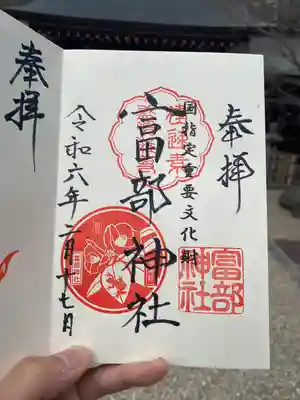 奉拝
国指定重要文化財
富部神社
富部
神社
令和六年二月十七日
奉拝